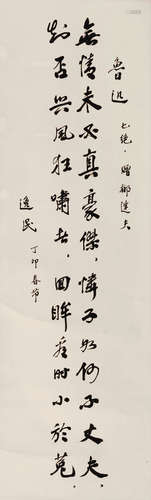 魯迅 七絕·贈郁達夫
無情未必真豪傑，憐子如何不丈夫，
知否興風狂嘯者，回眸看時小於菟。
逸民 丁卯春節